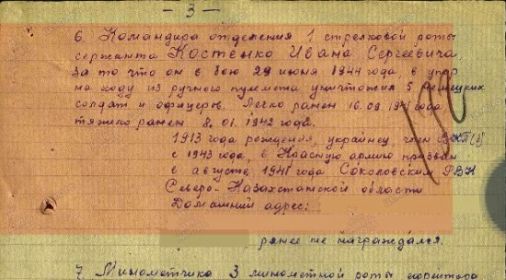 - 3 -
6. Командира отделения 1 стрелковой роты
сержанта Костенко Ивана Сергеевича,
за то что он в бою 29 июня 1944 года, в упор
на ходу из ручного пулемета уничтожил 5 немецких
солдат и офицеров. Легко ранен 16.09 1941 года
тяжело ранен 8.01.1942 года.
1913 года рождения, украинец, член ВКП(б)
с 1943 года, в Красную армию призван
в августе 1941 года Соколовским РВК
Северо-Казахстанской области
Домашний адрес:
ранее не награждался.
7. Минометчика 3 минометной роты ефрейтора